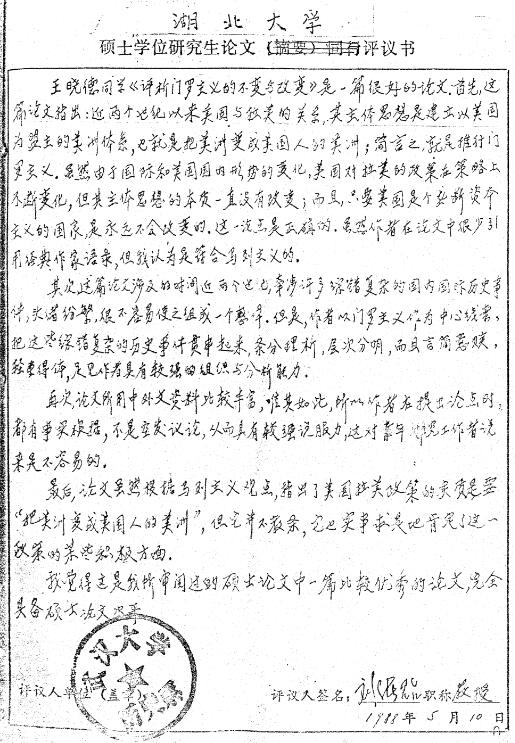 湖北大学
硕士学位研究生论文(摘要)同行评议书
王晓德同学《评析门罗主义的不变与改变》是一篇很好的论文.首先,这
篇论文指出:近两个世纪以来美国与拉美的关系,其主体思想是建立以美国
为盟主的美洲体系,也就是把美洲变成美国人的美洲;简言之,就是推行门
罗主义。虽然由于国际和美国国内形势的变化,美国对拉美的政策在策略上
不断变化,但其主体思想的本质一直没有改变;而且,只要美国是个垄断资本
主义的国家,是永远不会改变的。这一论点是正确的。虽然作者在论文中很少引
用经典作家语录,但我认为是符合马列主义的。
其次这篇论文涉及的时间近两个世纪,牵涉许多错综复杂的国内国际历史事
件,头绪纷繁,很不容易使之组成一个整体。但是,作者以门罗主义作为中心线索,
把这些综错复杂的历史事件贯串起来,条分理析,层次分明,而且言简意赅,
轻重得体,足见作者具有较强的组织与分析能力。
再次,论文所用中外文资料比较丰富,唯其如此,所以作者在提出论点时,
都有事实根据,不是空发议论,从而具有较强说服力,这对青年工作者说
来是不容易的。
最后,论文虽然根据马列主义观点,指出了美国拉美政策的实质是要
“把美洲变成美国人的美洲”,但它并不教条,它也实事求是地肯定了这一
政策的某些积极方面。
我觉得这是我所审阅过的硕士论文中一篇比较优秀的论文,完全
具备硕士论文水平。
武汉大学
评议人单位(盖章)
评议人签名:职称教授
1988年5月10日